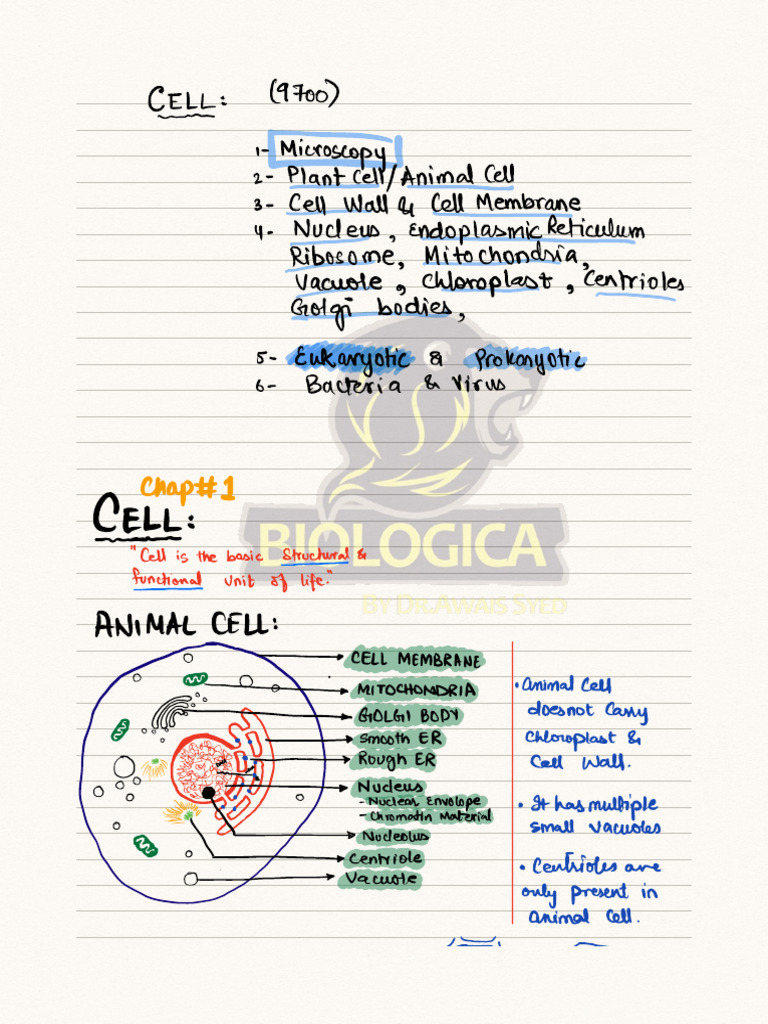 CELL: (9700)
1- Microscopy
2- Plant Cell/Animal Cell
3- Cell Wall & Cell Membrane
4- Nucleus, Endoplasmic Reticulum
Ribosome, Mitochondria,
Vacuole, Chloroplast, Centrioles
Golgi bodies,
5- Eukaryotic & Prokaryotic
6- Bacteria & Virus
Chap#1
CELL:
"Cell is the basic Structural &
functional unit of life."
BIOLOGICA
BY DR.AWAIS SYED
ANIMAL CELL:
CELL MEMBRANE
MITOCHONDRIA
GOLGI BODY
Smooth ER
Rough ER
Nucleus
- Nuclear Envelope
- Chromatin Material
Nucleolus
Centriole
Vacuole
• Animal Cell
doesnot Carry
Chloroplast &
Cell Wall.
• It has multiple
small vacuoles
• Centrioles are
only present in
animal Cell.